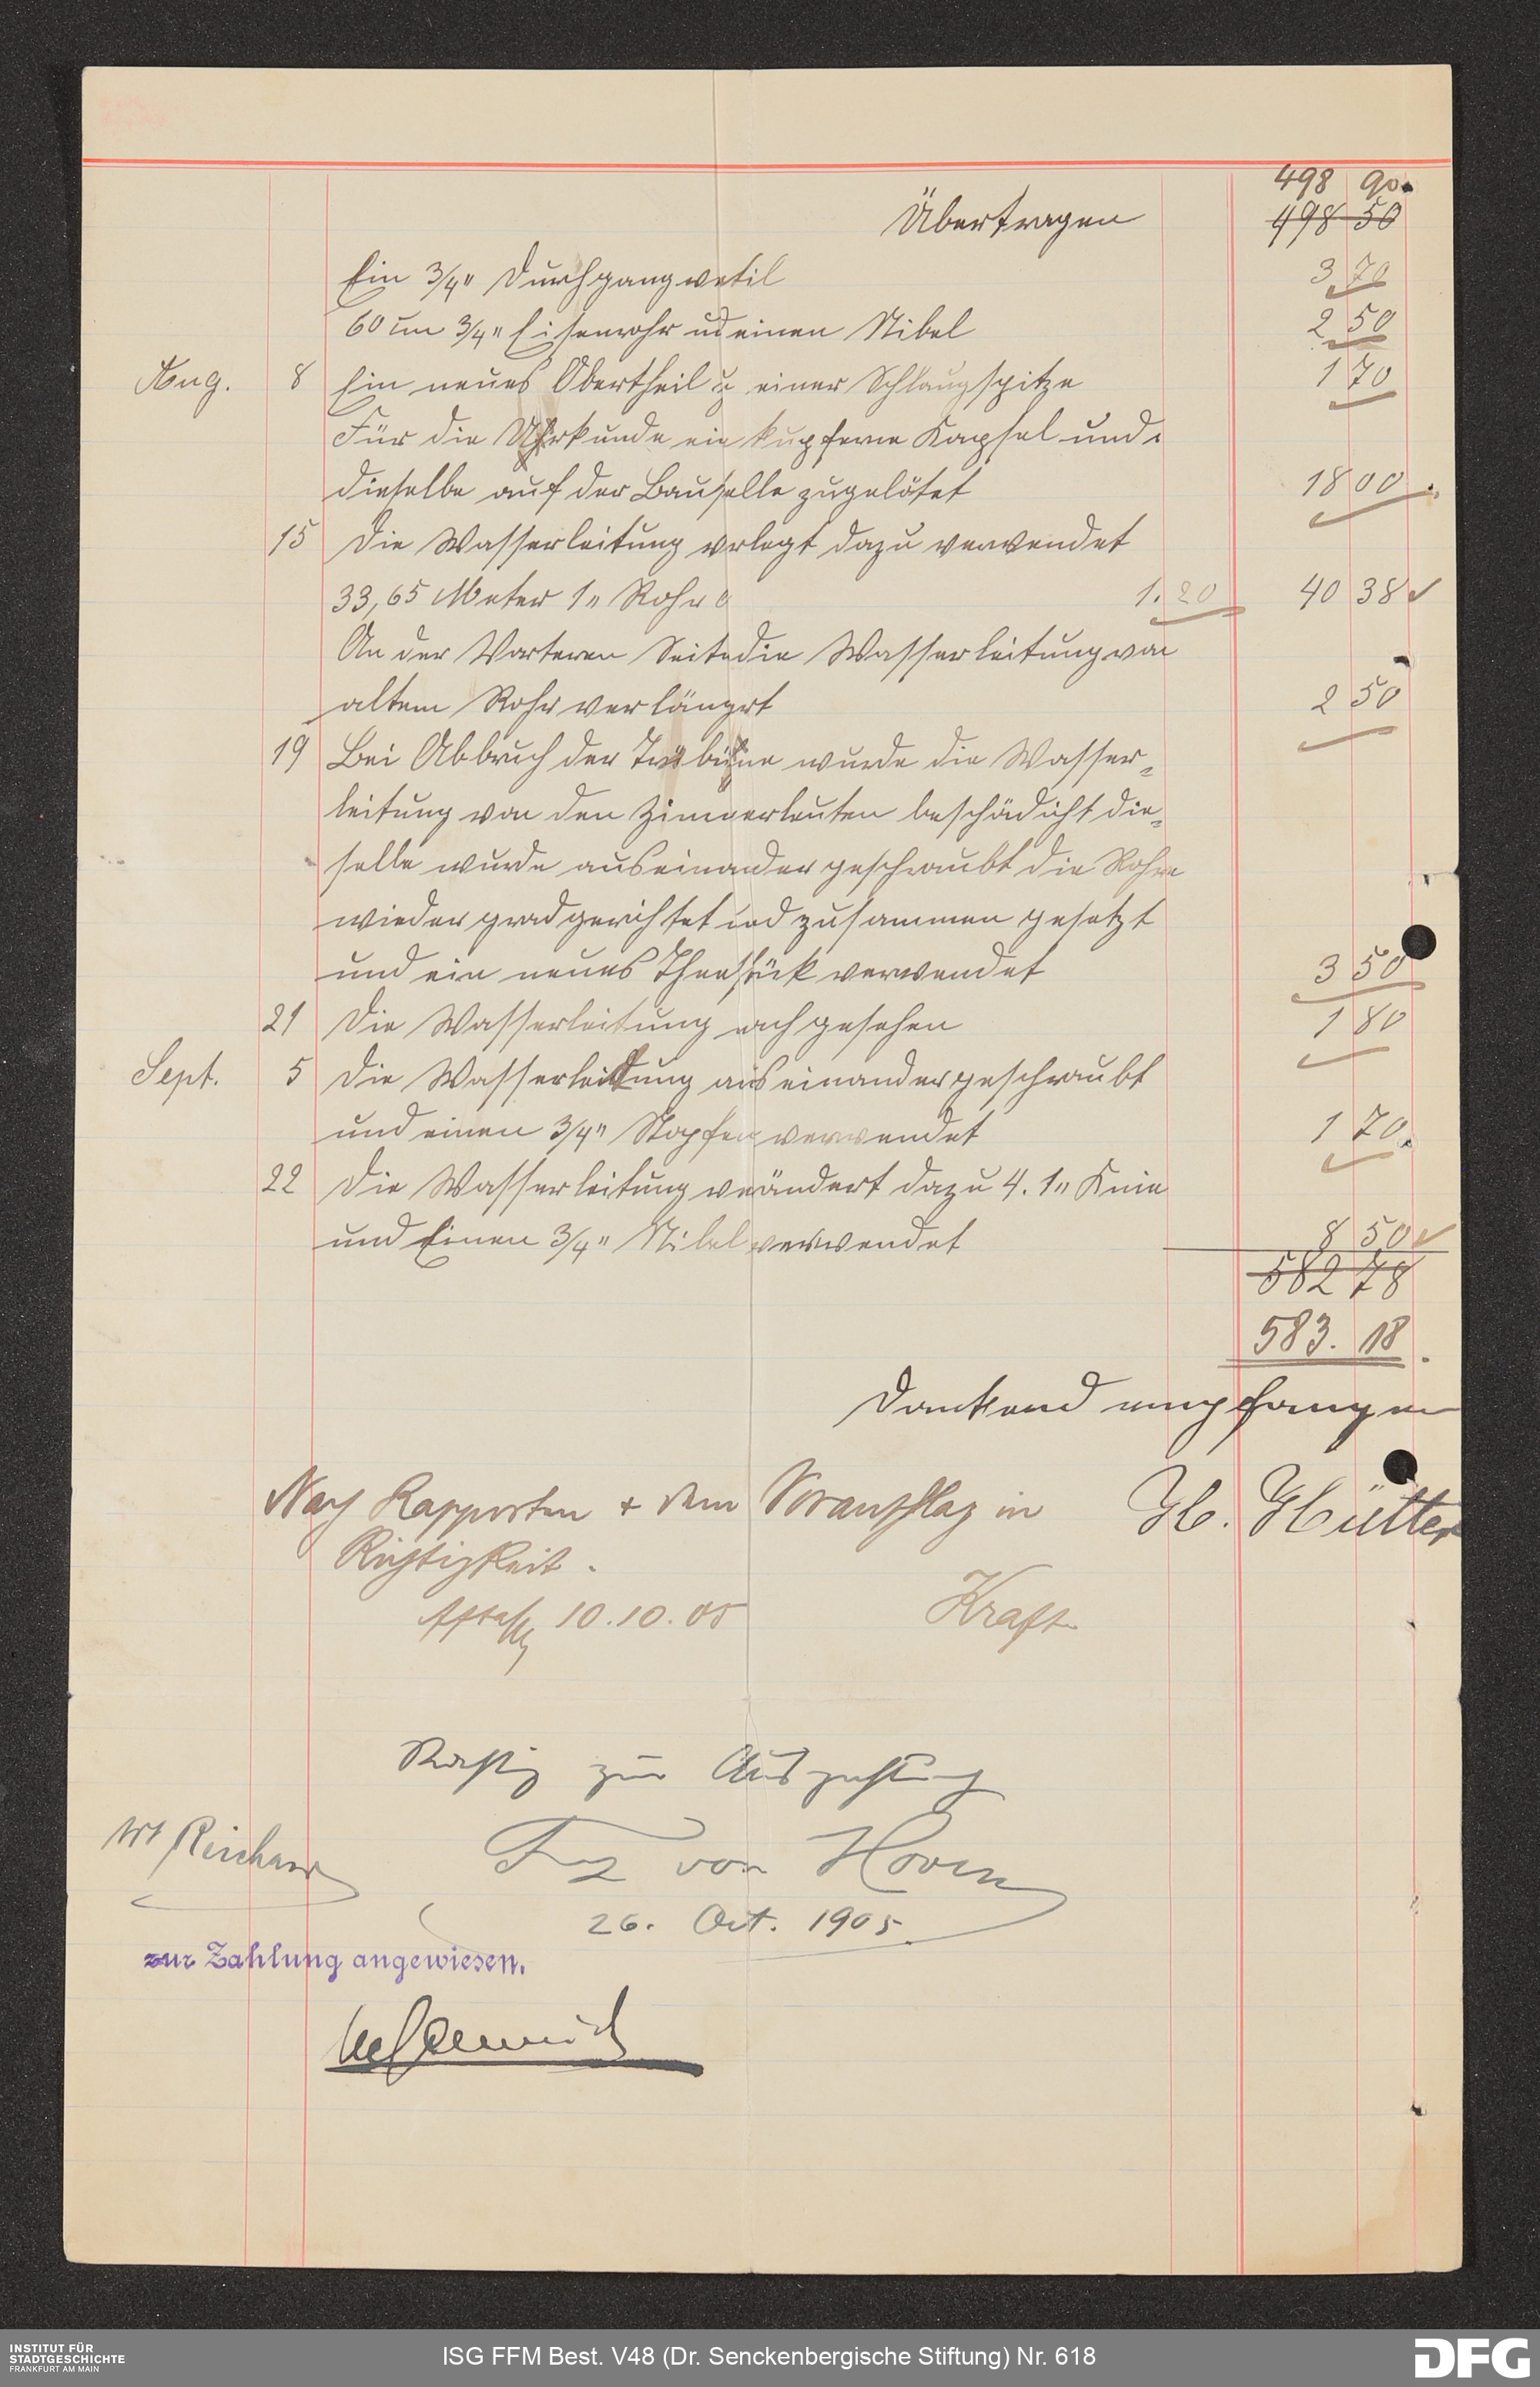 498 90.
Übertragen 498 50
Ein 3/4" Durchgangvetil 3 70
60 cm 3/4" Eisenrohr ud einen Nibel 2 50
Aug. 8 Ein neues Obertheil u einer Schlaugspitze 1 70
Für die Uhrkunde ein kupferne Kapsel und
dieselbe auf der Baustelle zugelötet 18 00
15 Die Wasserleitung verlegt dazu verwendet
33,65 Meter 1" Rohr 1.20 40 38
An der Vorteren Seite die Wasserleitung von
altem Rohr verlängrt 2 50
19 Bei Abbruch der Tribüne wurde die Wasser-
leitung von den Zimmerleuten beschädicht die-
selbe wurde auseinander geschraubt die Rohre
wieder grad gerichtet und zusammen gesetzt
und ein neues Theestück verwendet 3 50
21 Die Wasserleitung nach gesehen 1 80
Sept. 5 Die Wasserleitung auseinander geschraubt
und einen 3/4" Stopfen verwendet 1 70
22 Die Wasserleitung verändert dazu 4. 1" Knie
und Einen 3/4" Nibel verwendet 8 50
582 78
583. 18
Dankend empfangen
Nach Rapporten + dem Voranschlag in H. Hütter
Richtigkeit.
10.10.05 Kraft
Richtig zur Auszahlung
Frz von Hoven
26. Oct. 1905.
zur Zahlung angewiesen.
INSTITUT FÜR
STADTGESCHICHTE
FRANKFURT AM MAIN
ISG FFM Best. V48 (Dr. Senckenbergische Stiftung) Nr. 618
DFG